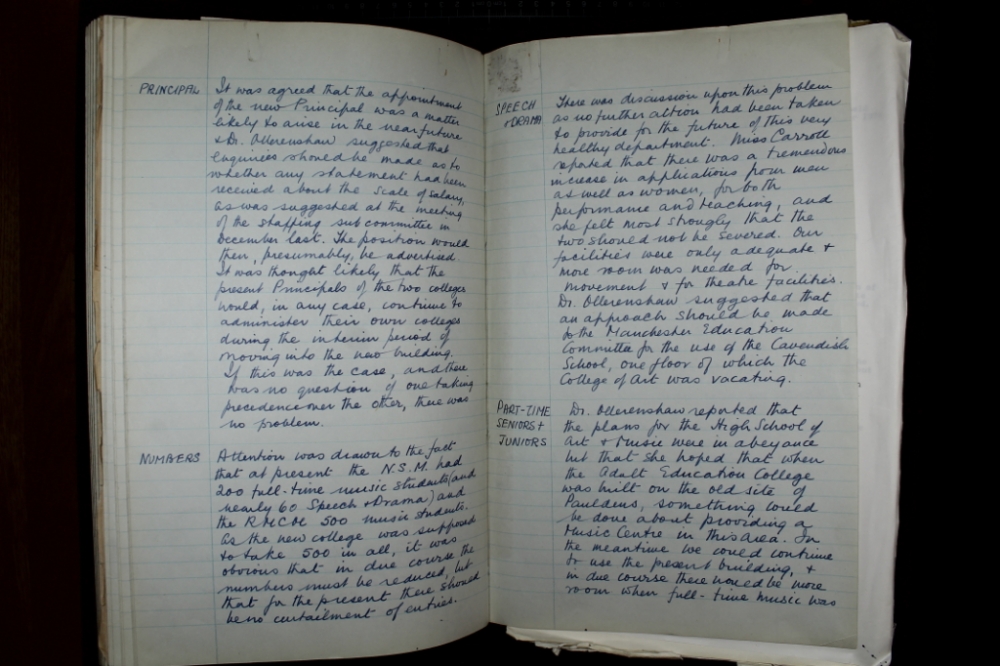 PRINCIPAL
It was agreed that the appointment
of the new Principal was a matter
likely to arise in the near future
& Dr. Ollerenshaw suggested that
enquiries should be made as to
whether any statement had been
received about the scale of salary,
as was suggested at the meeting
of the staffing sub committee in
December last. The position would
then, presumably, be advertised.
It was thought likely that the
present Principals of the two colleges
would, in any case, continue to
administer their own colleges
during the interim period of
moving into the new building.
If this was the case, and there
was no question of one taking
precedence over the other, there was
no problem.
NUMBERS
Attention was drawn to the fact
that at present the N.S.M. had
200 full-time music students (and
nearly 60 Speech & Drama) and
the RMCM 500 music students.
As the new college was supposed
to take 500 in all, it was
obvious that in due course the
numbers must be reduced, but
that for the present there should
be no curtailment of entries.
SPEECH
& DRAMA
There was discussion upon this problem
as no further action had been taken
to provide for the future of this very
healthy department. Miss Carroll
reported that there was a tremendous
increase in applications from men
as well as women, for both
performance and teaching, and
she felt most strongly that the
two should not be severed. Our
facilities were only adequate &
more room was needed for
movement & for theatre facilities.
Dr. Ollerenshaw suggested that
an approach should be made
to the Manchester Education
Committee for the use of the Cavendish
School, one floor of which the
College of Art was vacating.
PART-TIME
SENIORS &
JUNIORS
Dr. Ollerenshaw reported that
the plans for the High School of
Art & Music were in abeyance
but that she hoped that when
the Adult Education College
was built on the old site of
Pauldens, something could
be done about providing a
Music Centre in this area. In
the meantime we could continue
to use the present building, &
in due course there would be more
room when full-time music was